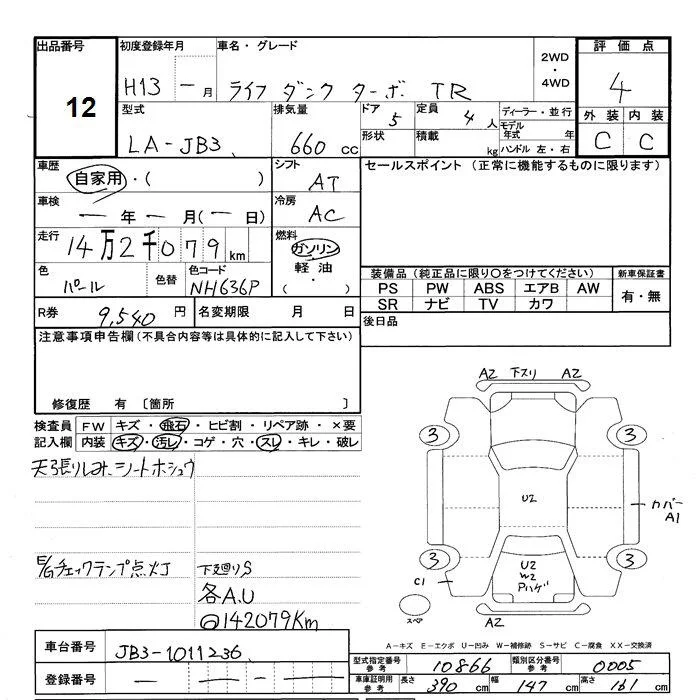 出品番号
12
初度登録年月
H13 - 月
車名・グレード
ライフ ダンク ターボ TR
2WD
・
4WD
評価点
4
外装 内装
C C
型式
LA-JB3
排気量
660 cc
ドア 5
形状
定員 4 人
積載 kg
ディーラー・並行
モデル年式 年
ハンドル 左・右
車歴
自家用・( )
シフト
AT
セールスポイント (正常に機能するものに限ります)
車検
- 年 - 月(- 日)
冷房
AC
走行
14万2千079 km
燃料
ガソリン
軽油
( ・ )
色
パール
色替
色コード
NH636P
装備品 (純正品に限り○をつけてください)
PS PW ABS エアB AW
SR ナビ TV カワ
新車保証書
有・無
R券 9,540 円
名変期限 月 日
後日品
注意事項申告欄(不具合内容等は具体的に記入して下さい)
修復歴 有 〔箇所 〕
検査員記入欄
FW キズ・飛石・ヒビ割・リペア跡・×要
内装 キズ・汚レ・コゲ・穴・スレ・キレ・破レ
天張りしみ、シートホシュウ
E/Gチェックランプ点灯
下廻りS
各A.U
@142079Km
A2 下スリ A2
3 3
U2
カバー A1
3 3
U2
W2
Pハゲ
C1
スペア
A2
A-キズ E-エクボ U-凹み W-補修跡 S-サビ C-腐食 XX-交換済
車台番号 JB3-1011236
登録番号 - - -
型式指定番号 参考 10866
類別区分番号 参考 0005
車庫証明用 参考 長さ 390 cm 幅 147 cm 高さ 161 cm